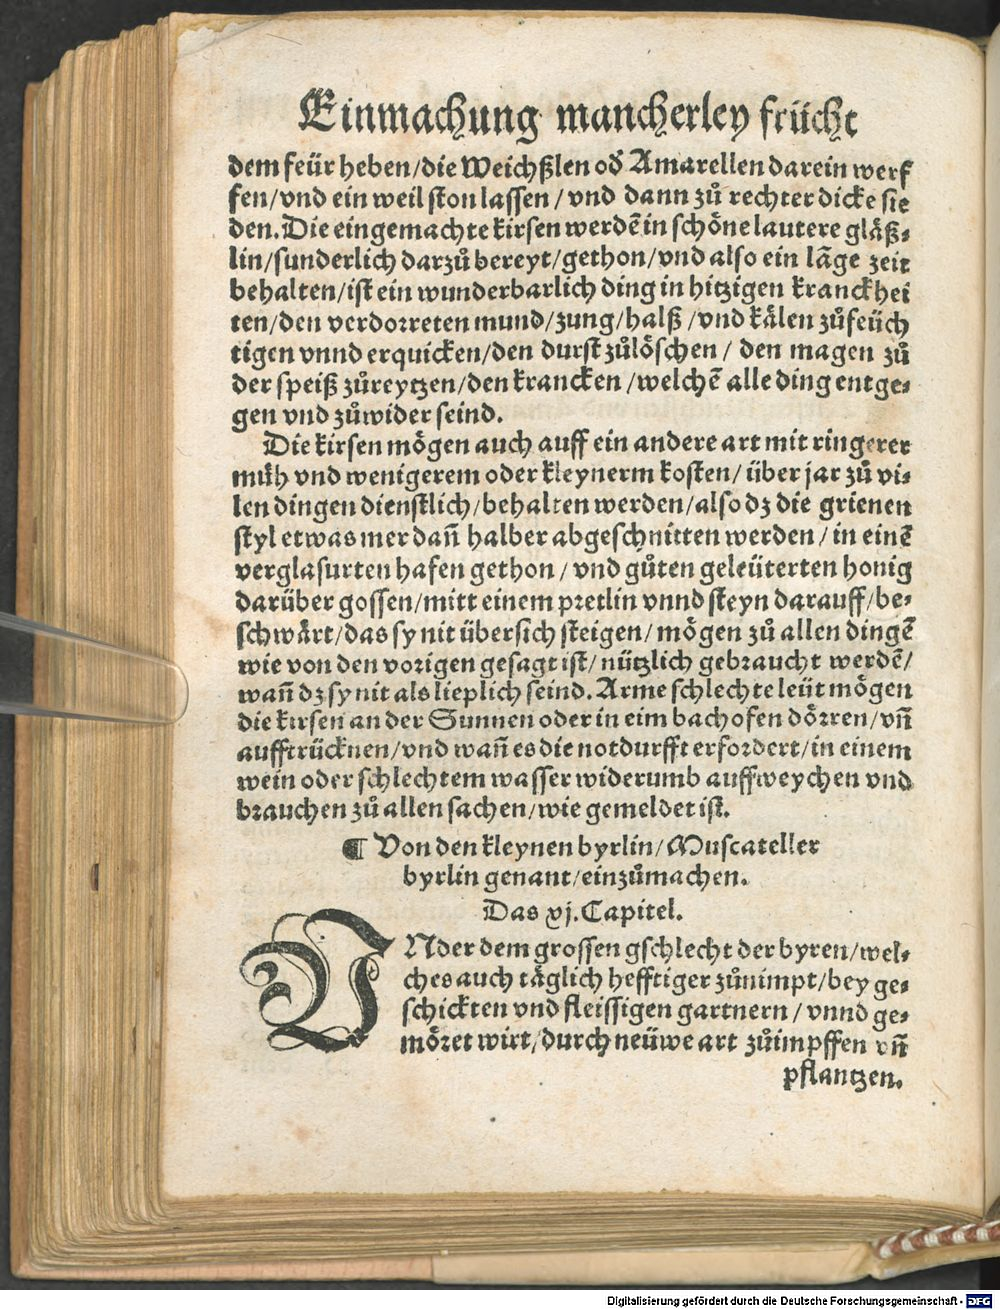 Einmachung mancherley frücht
dem feür heben/die Weichßlen od̕ Amarellen darein werf
fen/vnd ein weil ston lassen/ vnd dann zů rechter dicke sie
den. Die eingemachte kirsen werdē in schöne lautere gläß⸗
lin/sunderlich darzů bereyt/gethon/vnd also ein lāge zeit
behalten/ist ein wunderbarlich ding in hitzigen kranckhei
ten/den verdorreten mund/zung/halß/vnd kälen zůfeüch
tigen vnnd erquicken/den durst zůlöschen/ den magen zů
der speiß zůreytzen/den krancken/welchē alle ding entge⸗
gen vnd zůwider seind.
Die kirsen mögen auch auff ein andere art mit ringerer
müh vnd wenigerem oder kleynerm kosten/über jar zů vi⸗
len dingen dienstlich/behalten werden/also dz die grienen
styl etwas mer dañ halber abgeschnitten werden/in einē
verglasurten hafen gethon/vnd gůten geleüterten honig
darüber gossen/mitt einem pretlin vnnd steyn darauff/be⸗
schwärt/das sy nit übersich steigen/mögen zů allen dingē
wie von den vorigen gesagt ist/nützlich gebraucht werdē/
wañ dz sy nit als lieplich seind. Arme schlechte leüt mögen
die kirsen an der Sunnen oder in eim bachofen dörren/vñ
aufftrücknen/vnd wañ es die notdurfft erfordert/in einem
wein oder schlechtem wasser widerumb auffweychen vnd
brauchen zů allen sachen/wie gemeldet ist.
¶ Von den kleynen byrlin/Muscateller
byrlin genant/einzůmachen.
Das xj. Capitel.
VNder dem grossen gschlecht der byren/wel⸗
ches auch täglich hefftiger zůnimpt/bey ge⸗
schickten vnd fleissigen gartnern/vnnd ge⸗
möret wirt/durch neüwe art zůimpffen vñ
pflantzen.
Digitalisierung gefördert durch die Deutsche Forschungsgemeinschaft - DFG